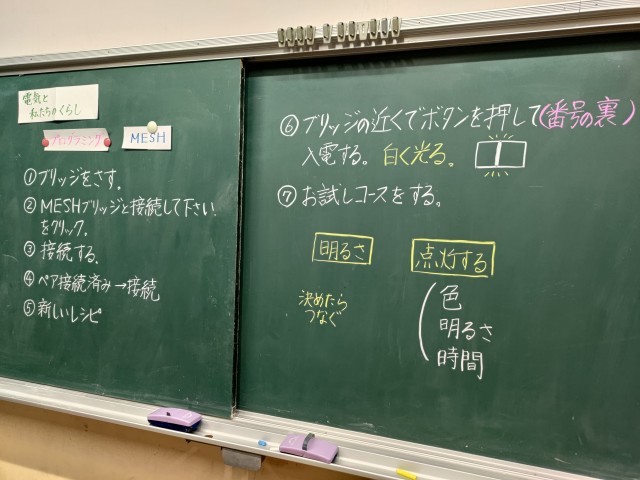 電気と
私たちのくらし
プログラミング
MESH
①ブリッジをさす.
②MESHブリッジと接続して下さい
をクリック.
③接続する.
④ペア接続済み→接続
⑤新しいレシピ
⑥ブリッジの近くでボタンを押して(番号の裏)
入電する。白く光る。
⑦お試しコースをする。
明るさ
点灯する
決めたら
つなぐ
色
明るさ
時間